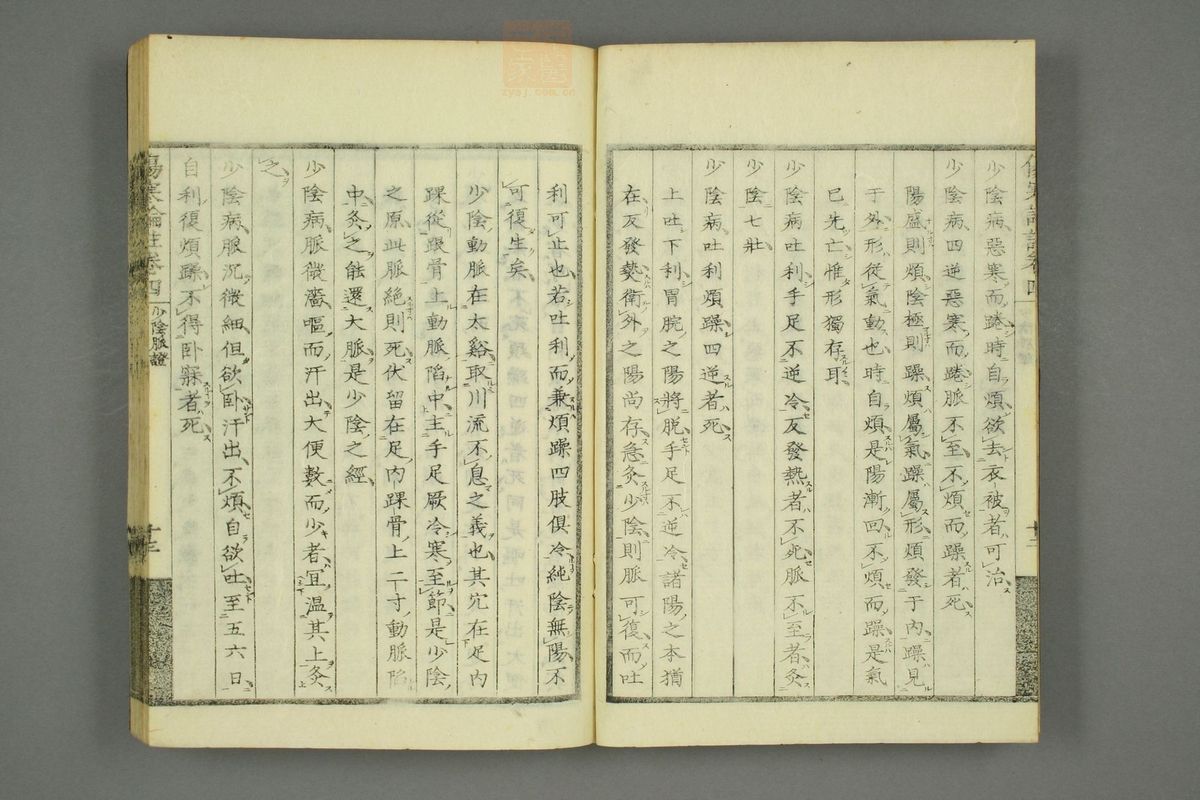 少陰病惡寒而踡時自煩欲去衣被者可治
少陰病四逆惡寒而踡脈不至不煩而躁者死
陽盛則煩陰極則躁煩屬氣躁屬形煩發于內躁見
于外形從氣動也時自煩是陽漸回不煩而躁是氣
已先亡惟形獨存耳
少陰病吐利手足不逆冷反發熱者不死脈不至者灸
少陰七壯
少陰病吐利煩躁四逆者死
上吐下利胃脘之陽將脫手足不逆冷諸陽之本猶
在反發熱衛外之陽尚存急灸少陰則脈可復而吐
傷寒論註卷四
廿二
利可止也若吐利而兼煩躁四肢俱冷純陰無陽不
可復生矣
少陰動脈在太谿取川流不息之義也其穴在足內
踝從跟骨上動脈陷中主手足厥冷寒至節是少陰
之原此脈絕則死伏留在足內踝骨上二寸動脈陷
中灸之能還大脈是少陰之經
少陰病脈微濇嘔而汗出大便數而少者宜溫其上灸
之
少陰病脈沉微細但欲臥汗出不煩自欲吐至五六日
自利復煩躁不得臥寐者死
傷寒論註卷四 少陰脈證
zysj.com.cn